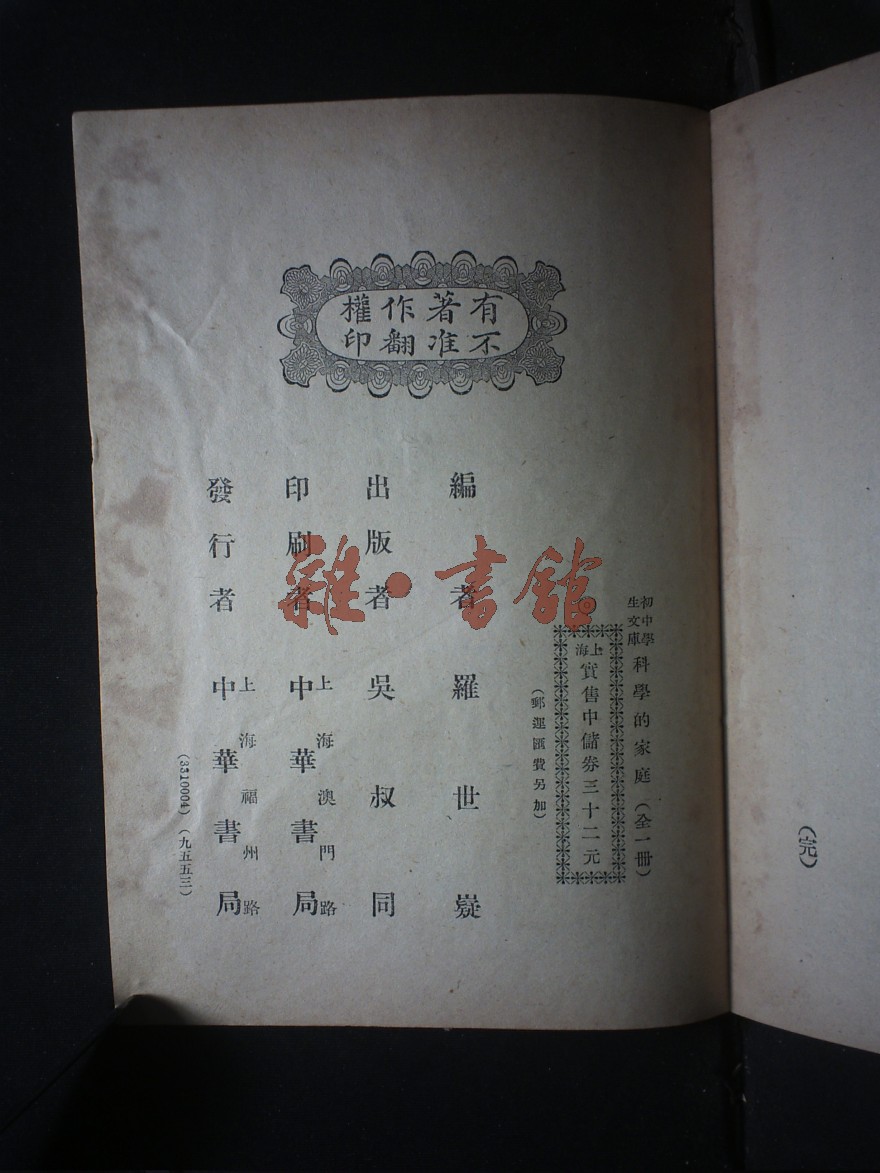 有著作權
不准翻印
初中學
生文庫
科學的家庭（全一冊）
上海
實售中儲券三十二元
（郵運匯費另加）
編者 羅世嶷
出版者 吳叔同
印刷者 上海澳門路
中華書局
發行者 上海福州路
中華書局
（3310004）（九五五三）
（完）
雜·書館